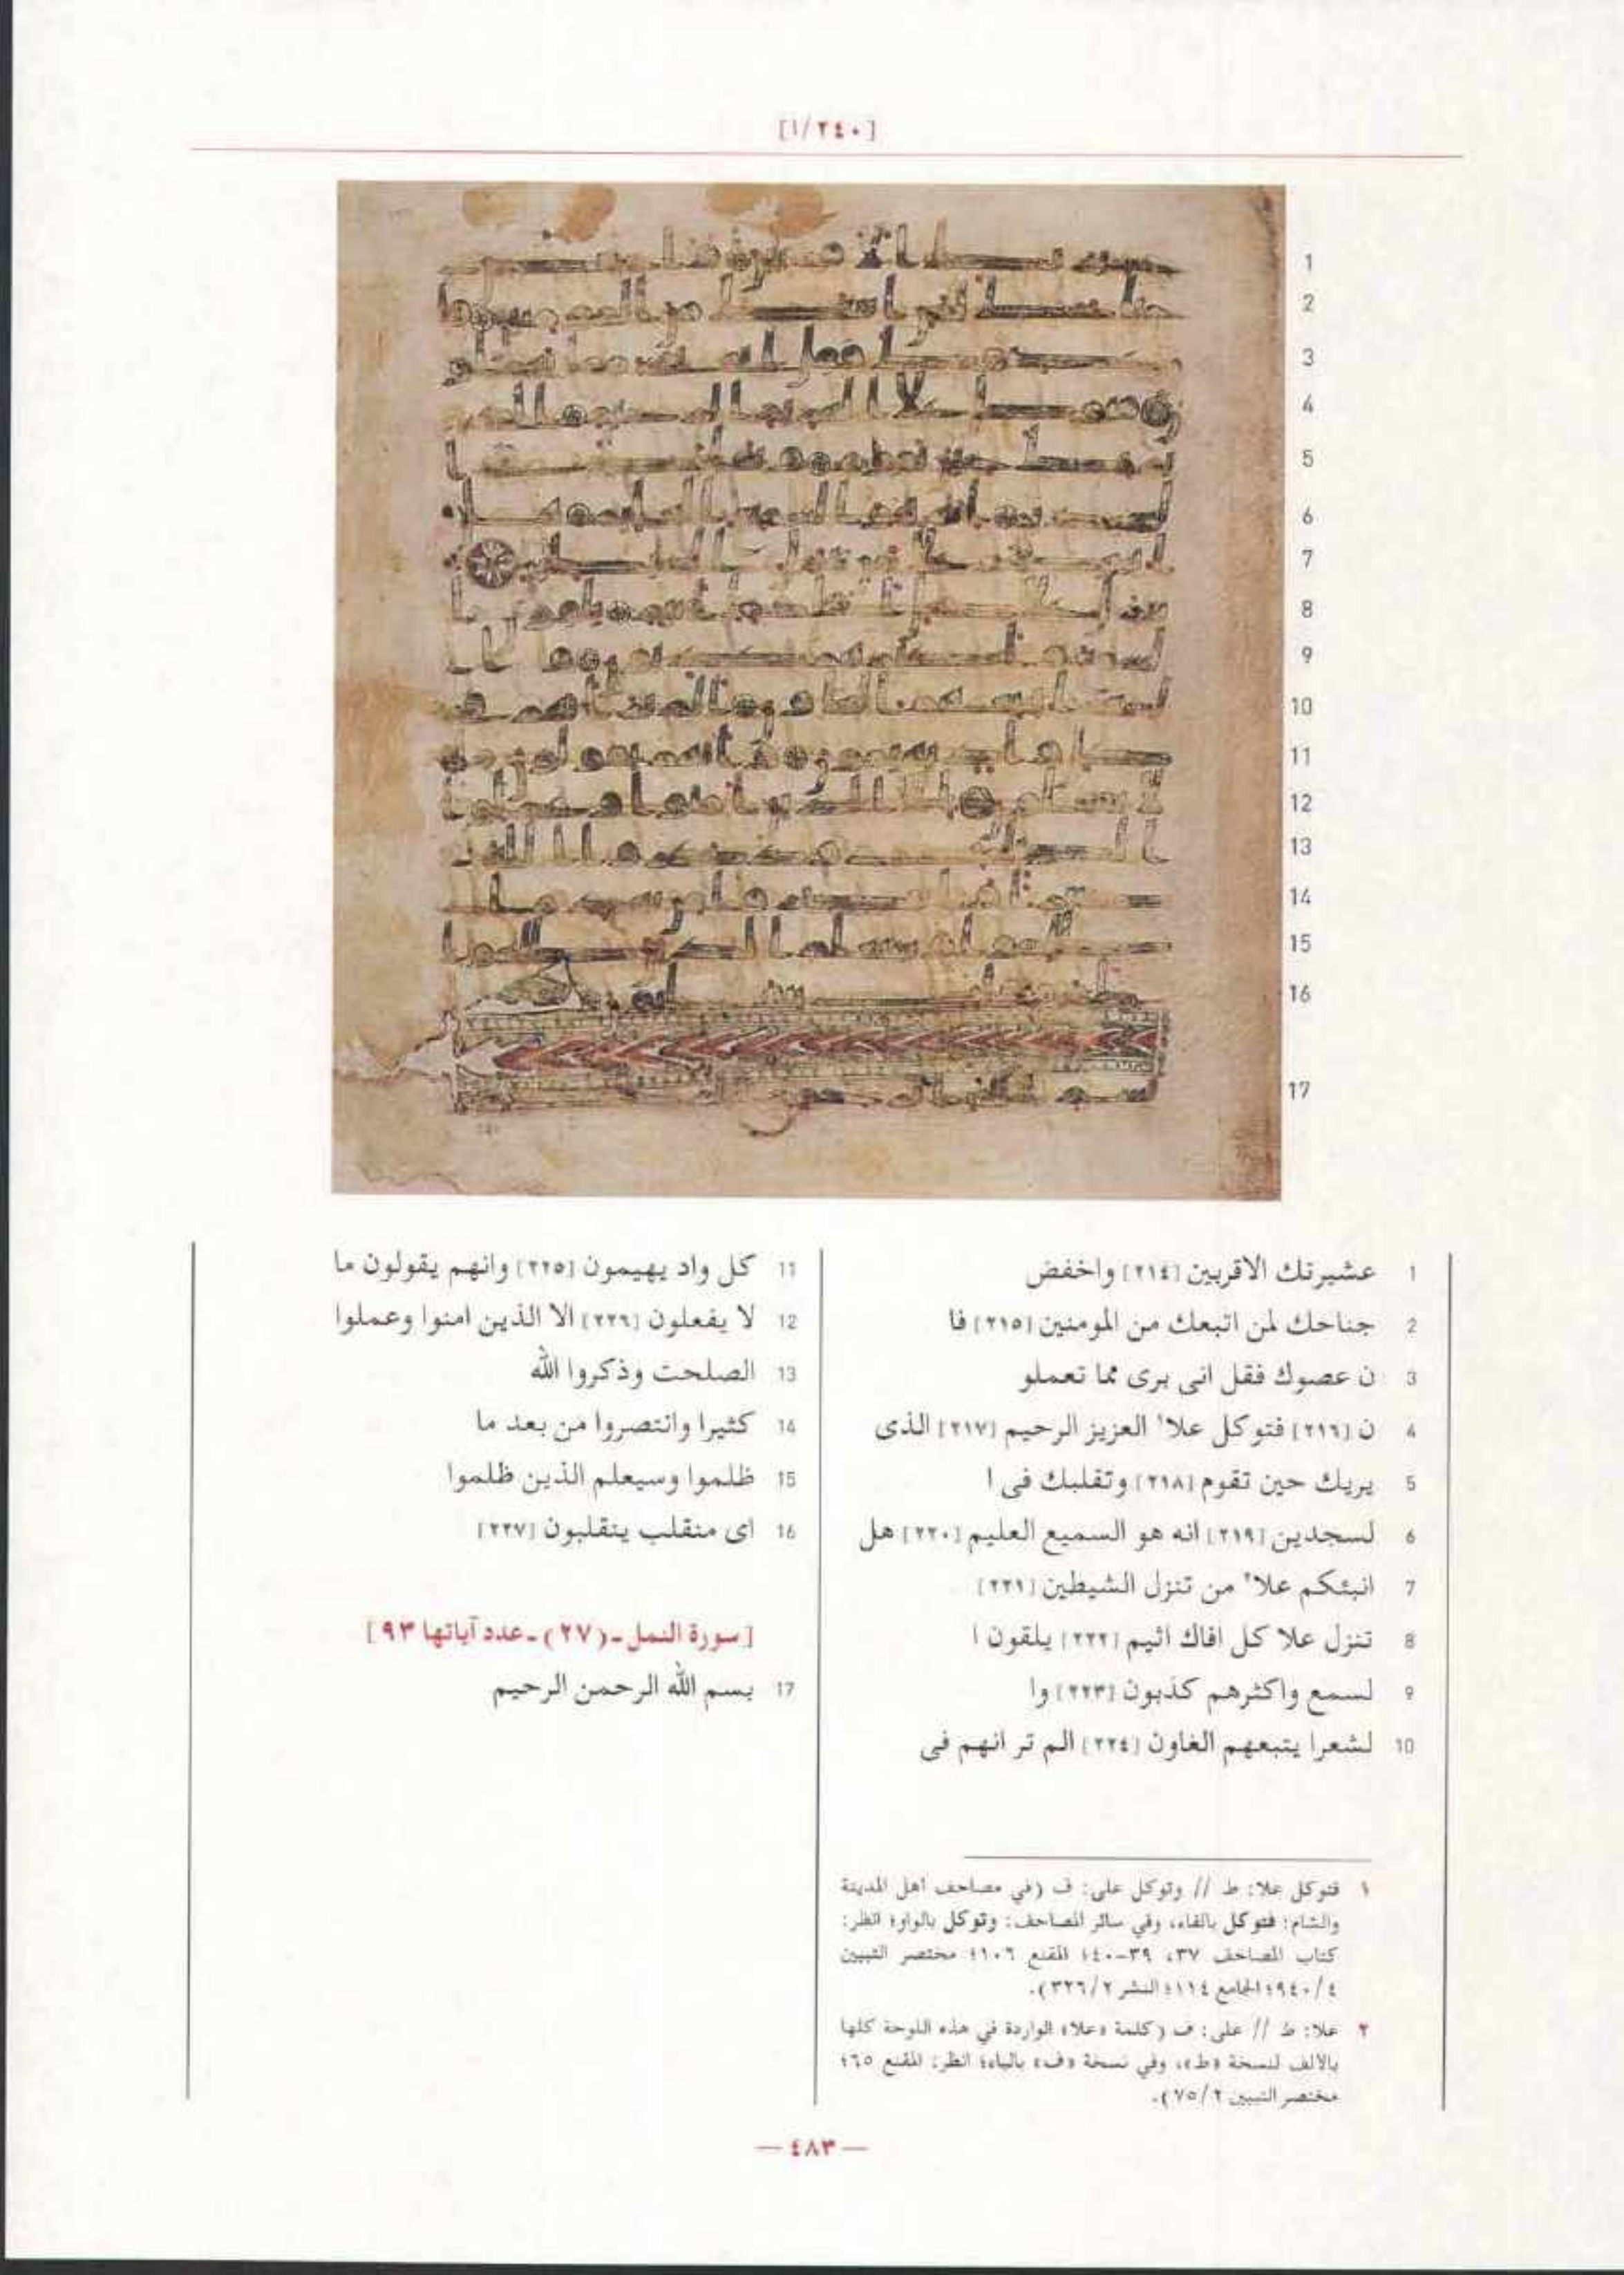 [١/٢٤٠]
1 عشيرتك الاقربين [٢١٤] واخفض
2 جناحك لمن اتبعك من المومنين [٢١٥] فا
3 ن عصوك فقل انى برى مما تعملو
4 ن [٢١٦] فتوكل علا١ العزيز الرحيم [٢١٧] الذى
5 يريك حين تقوم [٢١٨] وتقلبك فى ا
6 لسجدين [٢١٩] انه هو السميع العليم [٢٢٠] هل
7 انبئكم علا٢ من تنزل الشيطين [٢٢١]
8 تنزل علا كل افاك اثيم [٢٢٢] يلقون ا
9 لسمع واكثرهم كذبون [٢٢٣] وا
10 لشعرا يتبعهم الغاون [٢٢٤] الم تر انهم فى
11 كل واد يهيمون [٢٢٥] وانهم يقولون ما
12 لا يفعلون [٢٢٦] الا الذين امنوا وعملوا
13 الصلحت وذكروا الله
14 كثيرا وانتصروا من بعد ما
15 ظلموا وسيعلم الذين ظلموا
16 اى منقلب ينقلبون [٢٢٧]
[سورة النمل ـ (٢٧) ـ عدد آياتها ٩٣]
17 بسم الله الرحمن الرحيم
١ فتوكل علا: ط // وتوكل على: ف (في مصاحف أهل المدينة
والشام: فتوكل بالفاء، وفي سائر المصاحف: وتوكل بالواو؛ انظر:
كتاب المصاحف ٣٧، ٣٩-٤٠؛ المقنع ١٠٦؛ مختصر التبيين
٤/٩٤٠؛ الجامع ١١٤؛ النشر ٢/٣٢٦).
٢ علا: ط // على: ف (كلمة «علا» الواردة في هذه اللوحة كلها
بالألف لنسخة «ط»، وفي نسخة «ف» بالياء؛ انظر: المقنع ٦٥؛
مختصر التبيين ٢/٧٥).
— ٤٨٣ —